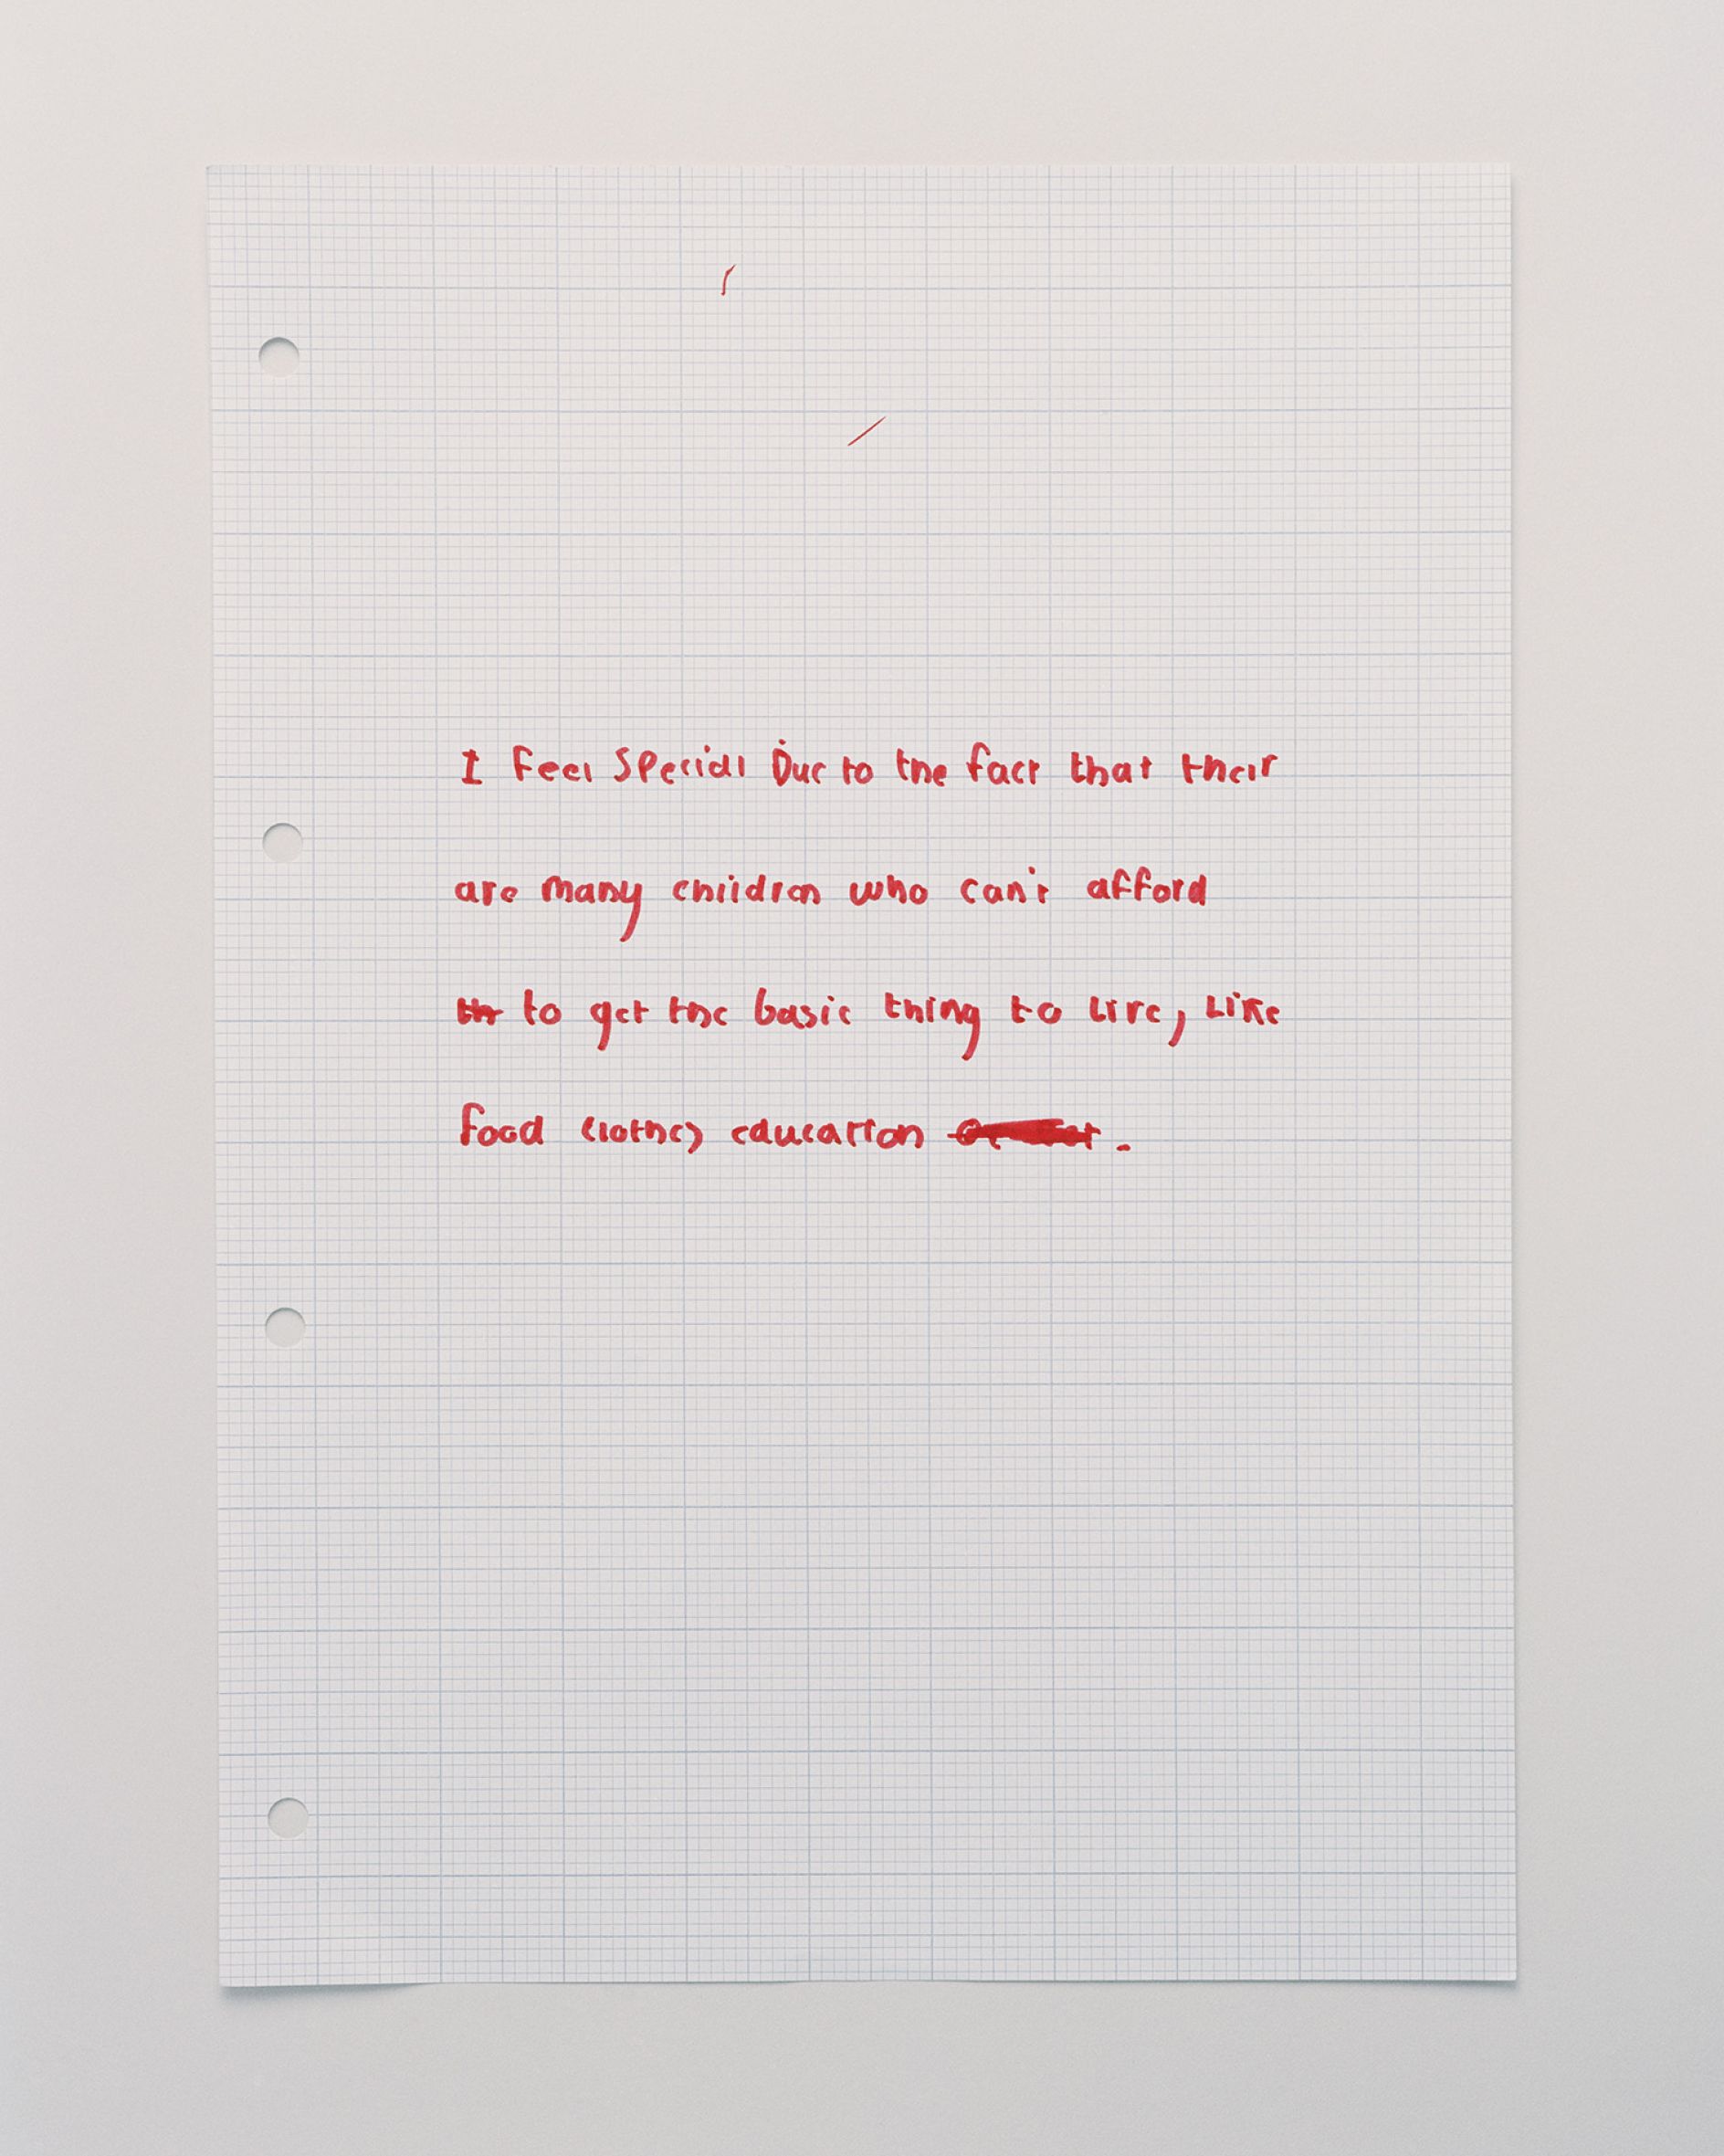 I feel special Due to the fact that their
are many children who can't afford
to get the basic thing to live, Like
food clothes education .